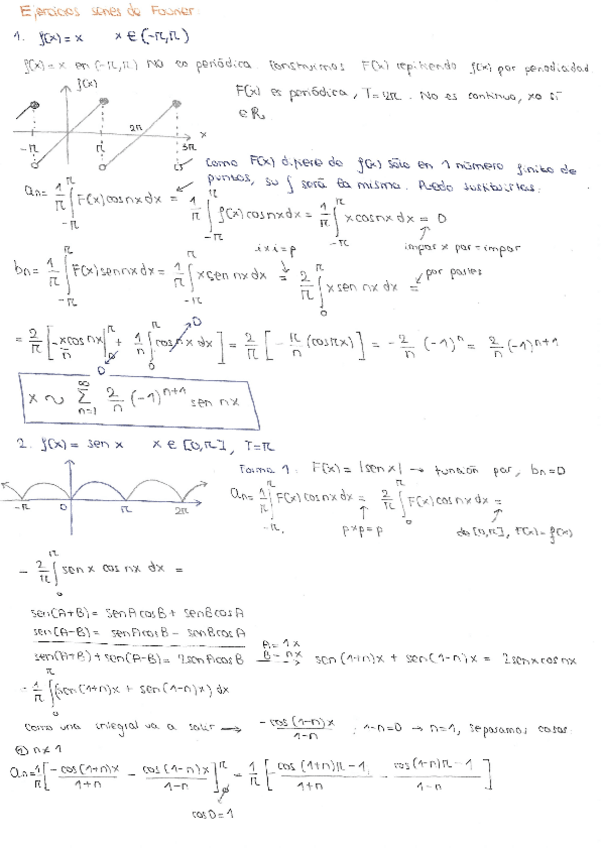 Ejercicios series de Fourier
1. f(x) = x   x ∈ (-π, π)
f(x) = x en (-π, π) No es periódica. Construimos F(x) repitiendo f(x) por periodicidad
f(x)
F(x) es periódica, T = 2π. No es continua,
∈ R
-π   π   2π   3π   x
Como F(x) difiere de f(x) sólo en 1 número finito de
puntos, su ∫ será la misma. Puedo sustituirlas.
an = 1/π ∫_{-π}^{π} F(x) cos nx dx = 1/π ∫_{-π}^{π} f(x) cos nx dx = 1/π ∫_{-π}^{π} x cos nx dx = 0
i x i = p   impar x par = impar
bn = 1/π ∫_{-π}^{π} F(x) sen nx dx = 1/π ∫_{-π}^{π} x sen nx dx = 2/π ∫_{0}^{π} x sen nx dx =   por partes
= 2/π [ -x cos nx / n |_{0}^{π} + 1/n ∫_{0}^{π} cos nx dx ] = 2/π [ -π/n (cos πx) ] = -2/n (-1)^n = 2/n (-1)^{n+1}
0   0
x ~ ∑_{n=1}^{∞} 2/n (-1)^{n+1} sen nx
2. f(x) = sen x   x ∈ [0, π], T = π
Forma 1: F(x) = |sen x| → función par, bn = 0
-π   0   π   2π
an = 1/π ∫_{-π}^{π} F(x) cos nx dx = 2/π ∫_{0}^{π} F(x) cos nx dx =
p x p = p   [0, π], F(x) = f(x)
- 2/π ∫_{0}^{π} sen x cos nx dx =
sen(A+B) = sen A cos B + sen B cos A
sen(A-B) = sen A cos B - sen B cos A
sen(A+B) + sen(A-B) = 2 sen A cos B   A = 1x   B = nx   → sen(1+n)x + sen(1-n)x = 2 sen x cos nx
- 1/π ∫_{0}^{π} (sen(1+n)x + sen(1-n)x) dx
Como una integral va a salir → -cos(1-n)x / 1-n ; 1-n = 0 → n = 1, separamos casos:
n ≠ 1
an = 1/π [ -cos(1+n)x / 1+n - cos(1-n)x / 1-n ]_{0}^{π} = 1/π [ -cos(1+n)π - 1 / 1+n - cos(1-n)π - 1 / 1-n ]
cos 0 = 1